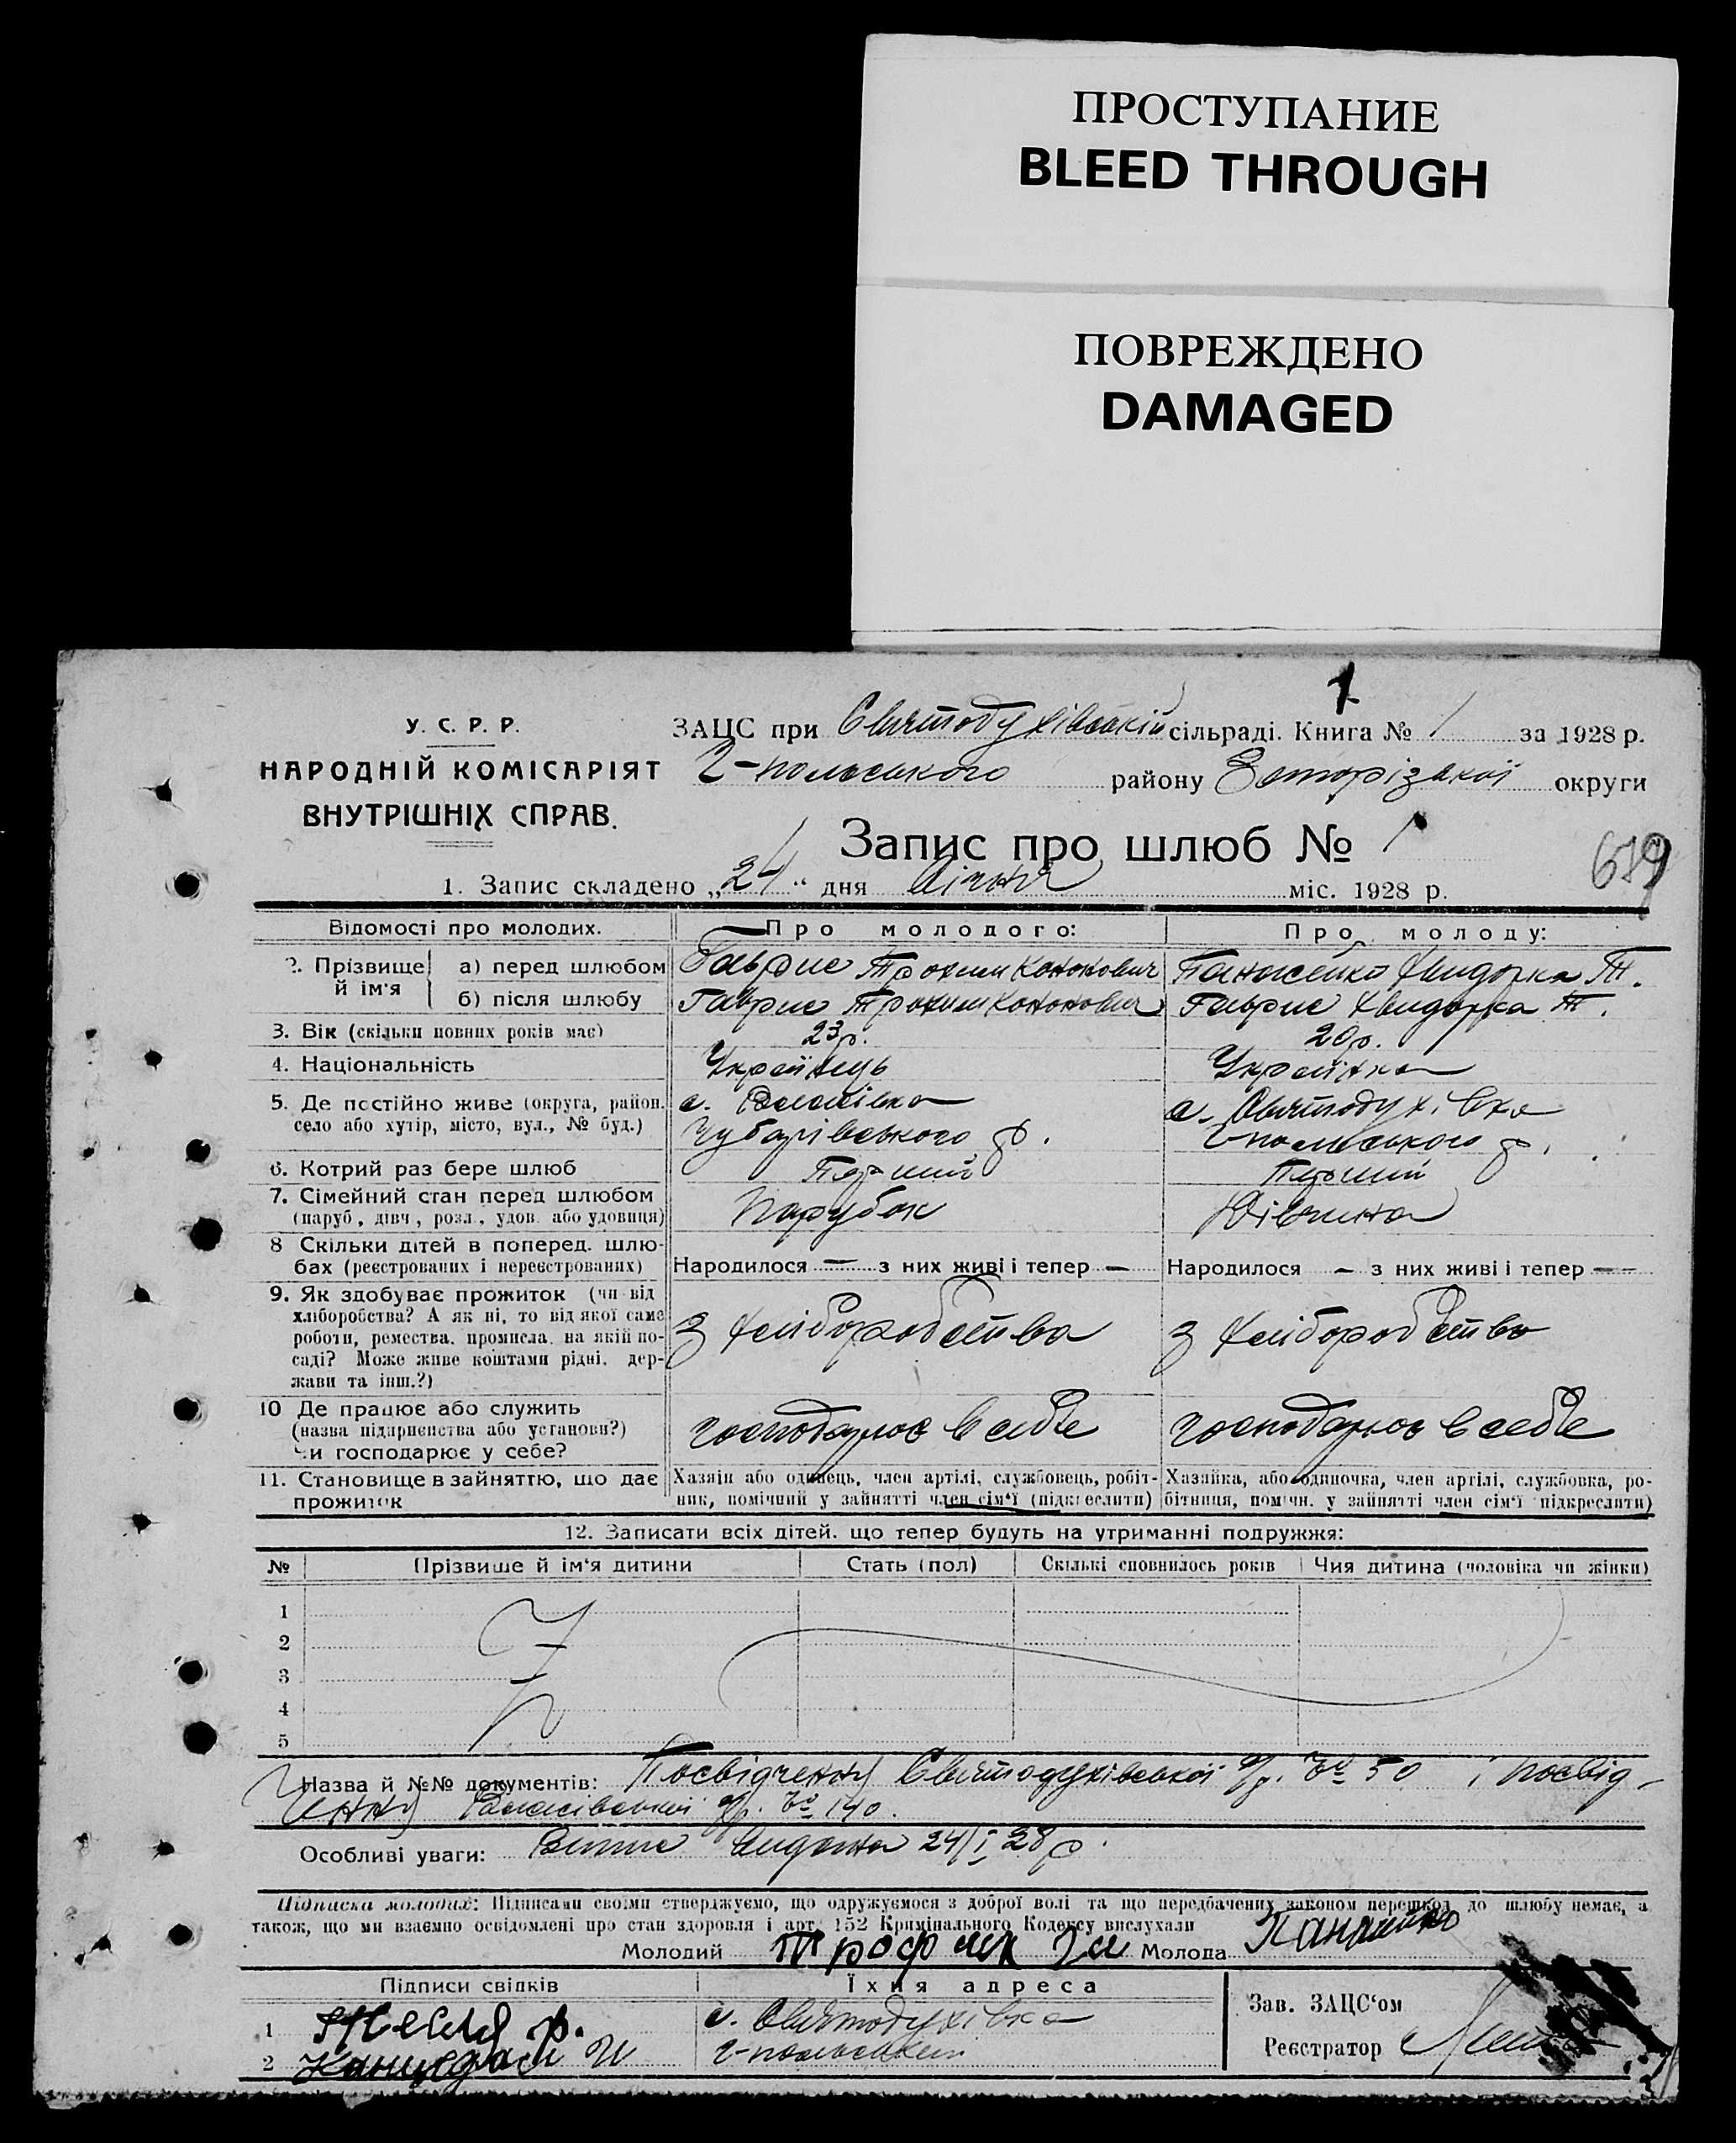 ПРОСТУПАНИЕ
BLEED THROUGH
ПОВРЕЖДЕНО
DAMAGED
1
У. С. Р. Р.
НАРОДНІЙ КОМІСАРІЯТ
ВНУТРІШНІХ СПРАВ.
ЗАЦС при Святодухівській сільраді. Книга № 1 за 1928 р.
Г-польського району Запорізької округи
Запис про шлюб № 1
619
1. Запис складено „24“ дня Січня міс. 1928 р.
Відомості про молодих. Про молодого: Про молоду:
2. Прізвище й ім'я а) перед шлюбом Гаврис Трохим Кононович Панасейко Хвидорка Т.
б) після шлюбу Гаврис Трохим Кононович Гаврис Хвидорка Т.
3. Вік (скільки повних років має) 23 р. 20 р.
4. Національність Українець Українка
5. Де постійно живе (округа, район, село або хутір, місто, вул., № буд.) с. Чубарівського р. с. Святодухівка Г-польського р.
6. Котрий раз бере шлюб Перший Перший
7. Сімейний стан перед шлюбом (паруб., дівч., розл., удов. або удовиця) Парубок Дівчина
8 Скільки дітей в поперед. шлюбах (реєстрованих і нереєстрованих) Народилося — з них живі і тепер — Народилося — з них живі і тепер —
9. Як здобуває прожиток (чи від
хліборобства? А як ні, то від якої саме
роботи, ремества, промисла, на якій по-
саді? Може живе коштами рідні, дер-
жави та інш.?)
З хліборобства З хліборобства
10 Де працює або служить
(назва підприємства або установи?)
Чи господарює у себе?
господарює в себе господарює в себе
11. Становище в зайняттю, що дає прожиток
Хазяїн або одинець, член артілі, службовець, робіт-
ник, помічний у зайнятті член сім'ї (підкреслити)
Хазяйка, або одиночка, член артілі, службовка, ро-
бітниця, помічн. у зайнятті член сім'ї підкреслити)
12. Записати всіх дітей, що тепер будуть на утриманні подружжя:
№ Прізвище й ім'я дитини Стать (пол) Скількі сповнилось років Чия дитина (чоловіка чи жінки)
1
2
3
4
5
Назва й №№ документів: Посвідчення Святодухівської с/р. № 50 і посвід-
чення с/р. № 140.
Особливі уваги: Видана 24/I 28 р.
Підписка молодих: Підписами своїми стверджуємо, що одружуємося з доброї волі та що передбачених законом перешкод до шлюбу немає, а
також, що ми взаємно освідомлені про стан здоровля і арт. 152 Кримінального Кодексу вислухали
Молодий Молода Панасейко
Підписи свідків Їхня адреса
1 с. Святодухівка
2
Зав. ЗАЦС'ом
Реєстратор